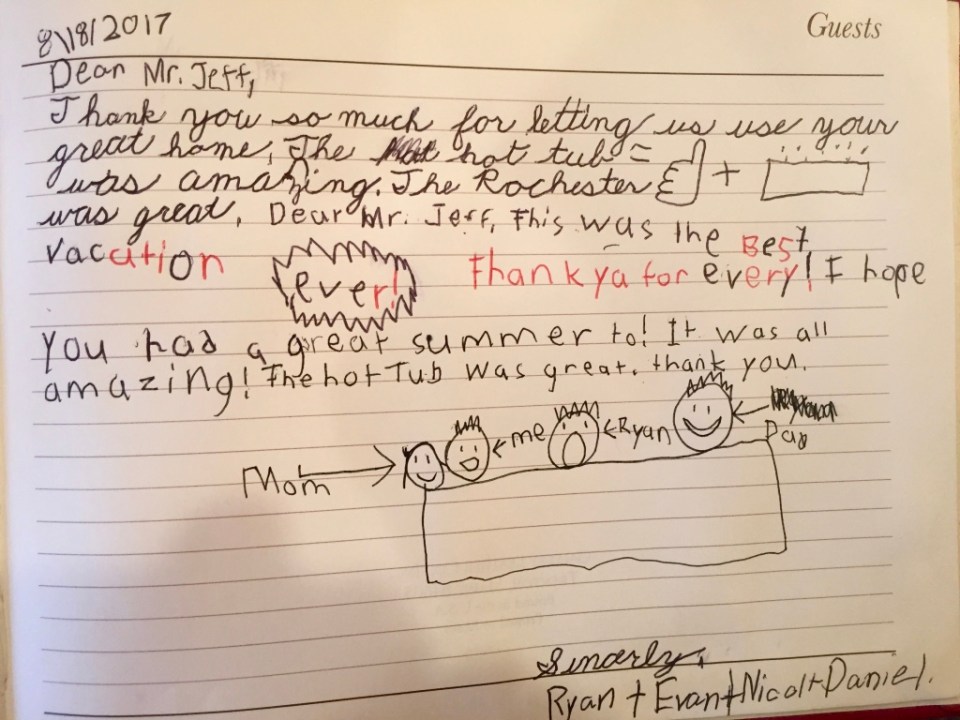 8/18/2017
Guests
Dear Mr. Jeff,
Thank you so much for letting us use your
great home. The hot tub =
was amazing. The Rochester +
was great. Dear Mr. Jeff, This was the Best
vacation ever! Thank ya for every! I hope
you had a great summer to! It was all
amazing! The hot Tub was great. thank you.
Mom
me
Ryan
Dad
Sincerly,
Ryan + Evan + Nicol + Daniel.